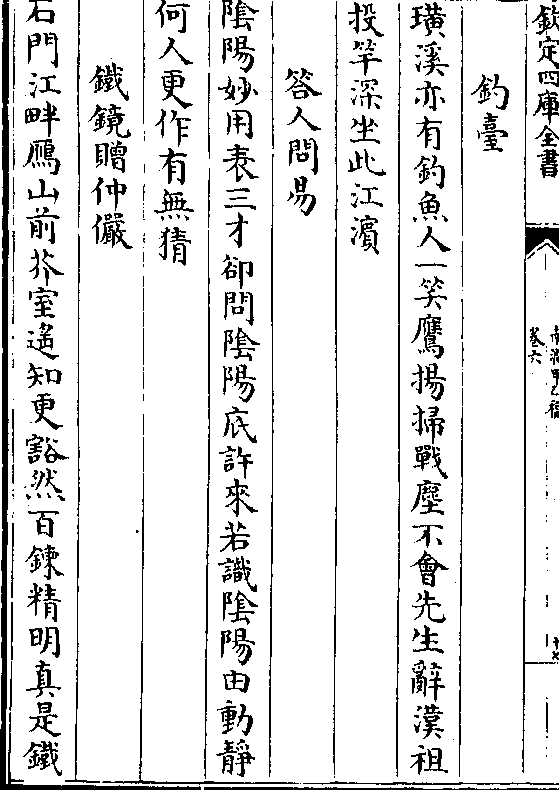 欽定四庫全書
卷六
釣臺
璜溪亦有釣魚人一笑鷹揚掃戰塵不會先生辭漢祖
投竿深坐此江濱
答人問易
陰陽妙用表三才卻問陰陽底許來若識陰陽由動靜
何人更作有無猜
鐵鏡贈仲儼
石門江畔鴈山前芥室遙知更豁然百鍊精明真是鐵